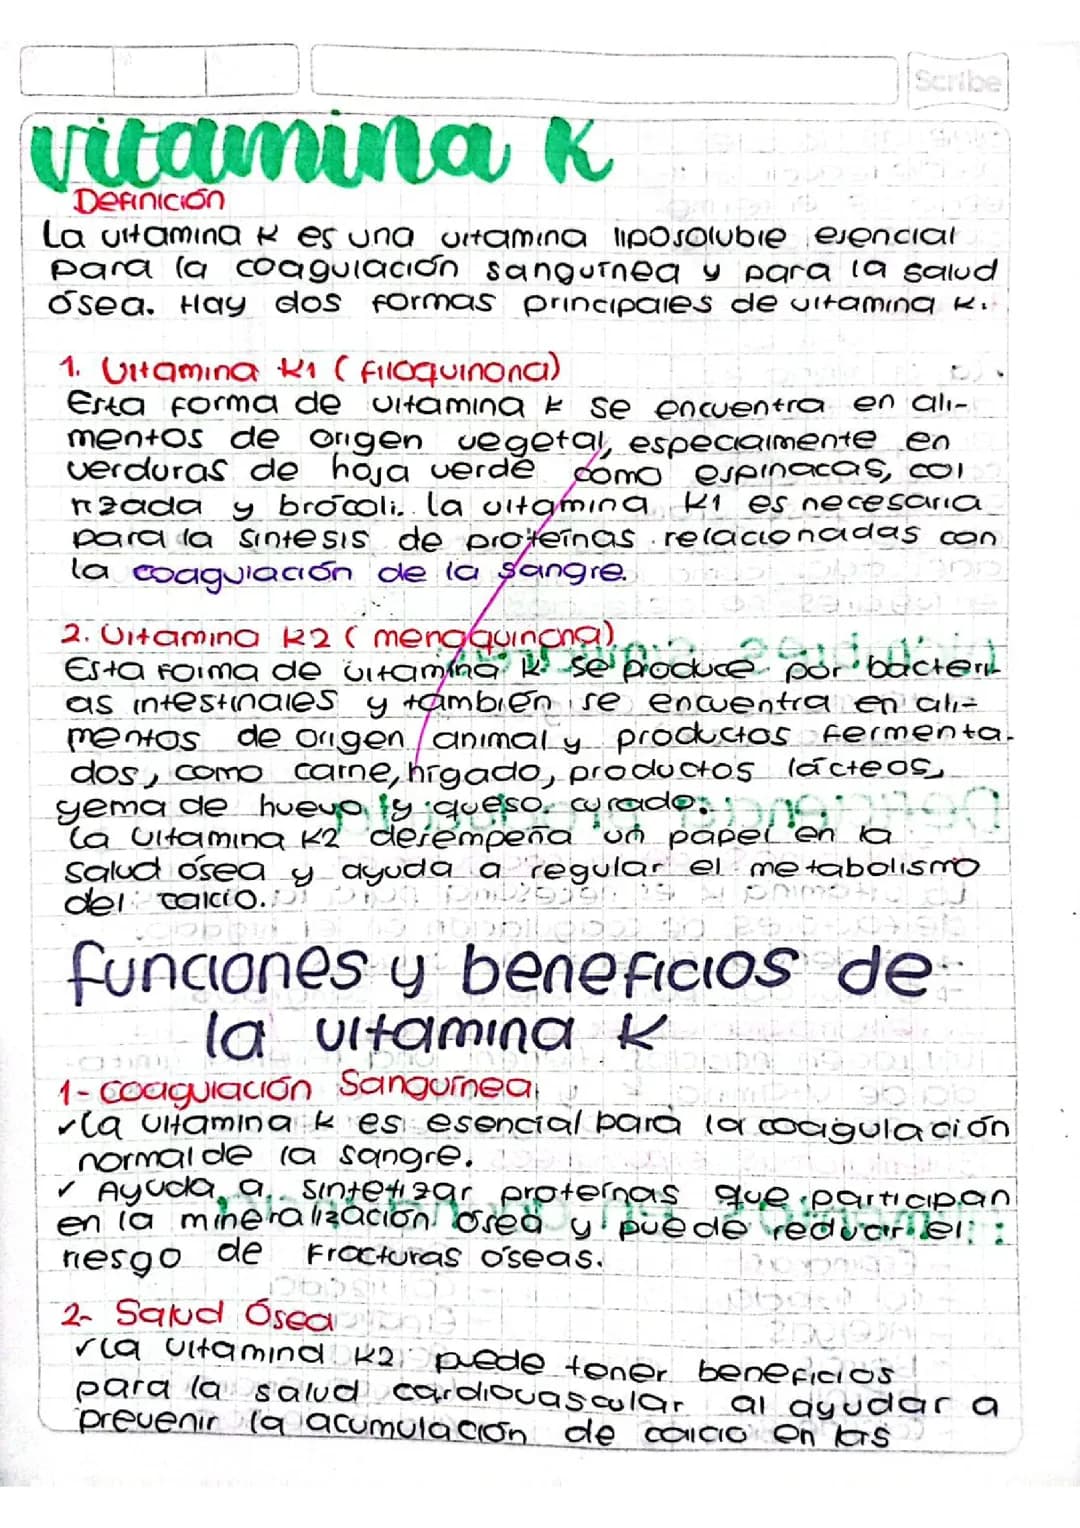 Scribe
vitamina K
Definición
La vitamina K es una vitamina liposoluble esencial
para la coagulación sanguínea y para la salud
ósea. Hay dos formas principales de vitamina K.
1. Vitamina K1 (filoquinona)
Esta forma de vitamina K se encuentra en ali-
mentos de origen vegetal, especialmente en
verduras de hoja verde como espinacas, col
rizada y brócoli. la vitamina K1 es necesaria
para la síntesis de proteínas relacionadas con
la coagulación de la sangre.
2. Vitamina K2 (menaquinona)
Esta forma de vitamina K se produce por bacteri
as intestinales y también se encuentra en ali-
mentos de origen animal y productos fermenta-
dos, como carne, hígado, productos lácteos,
yema de huevo y queso curado.
La vitamina K2 desempeña un papel en la
salud ósea y ayuda a regular el metabolismo
del calcio.
funciones y beneficios de
la vitamina K
1- coagulación Sanguínea
✓La vitamina K es esencial para la coagulación
normal de la sangre.
✓ Ayuda a sintetizar proteínas que participan
en la mineralización ósea y puede reducir el
riesgo de fracturas óseas.
2- Salud Ósea
✓La vitamina K2 puede tener beneficios
para la salud cardiovascular al ayudar a
prevenir la acumulación de calcio en las